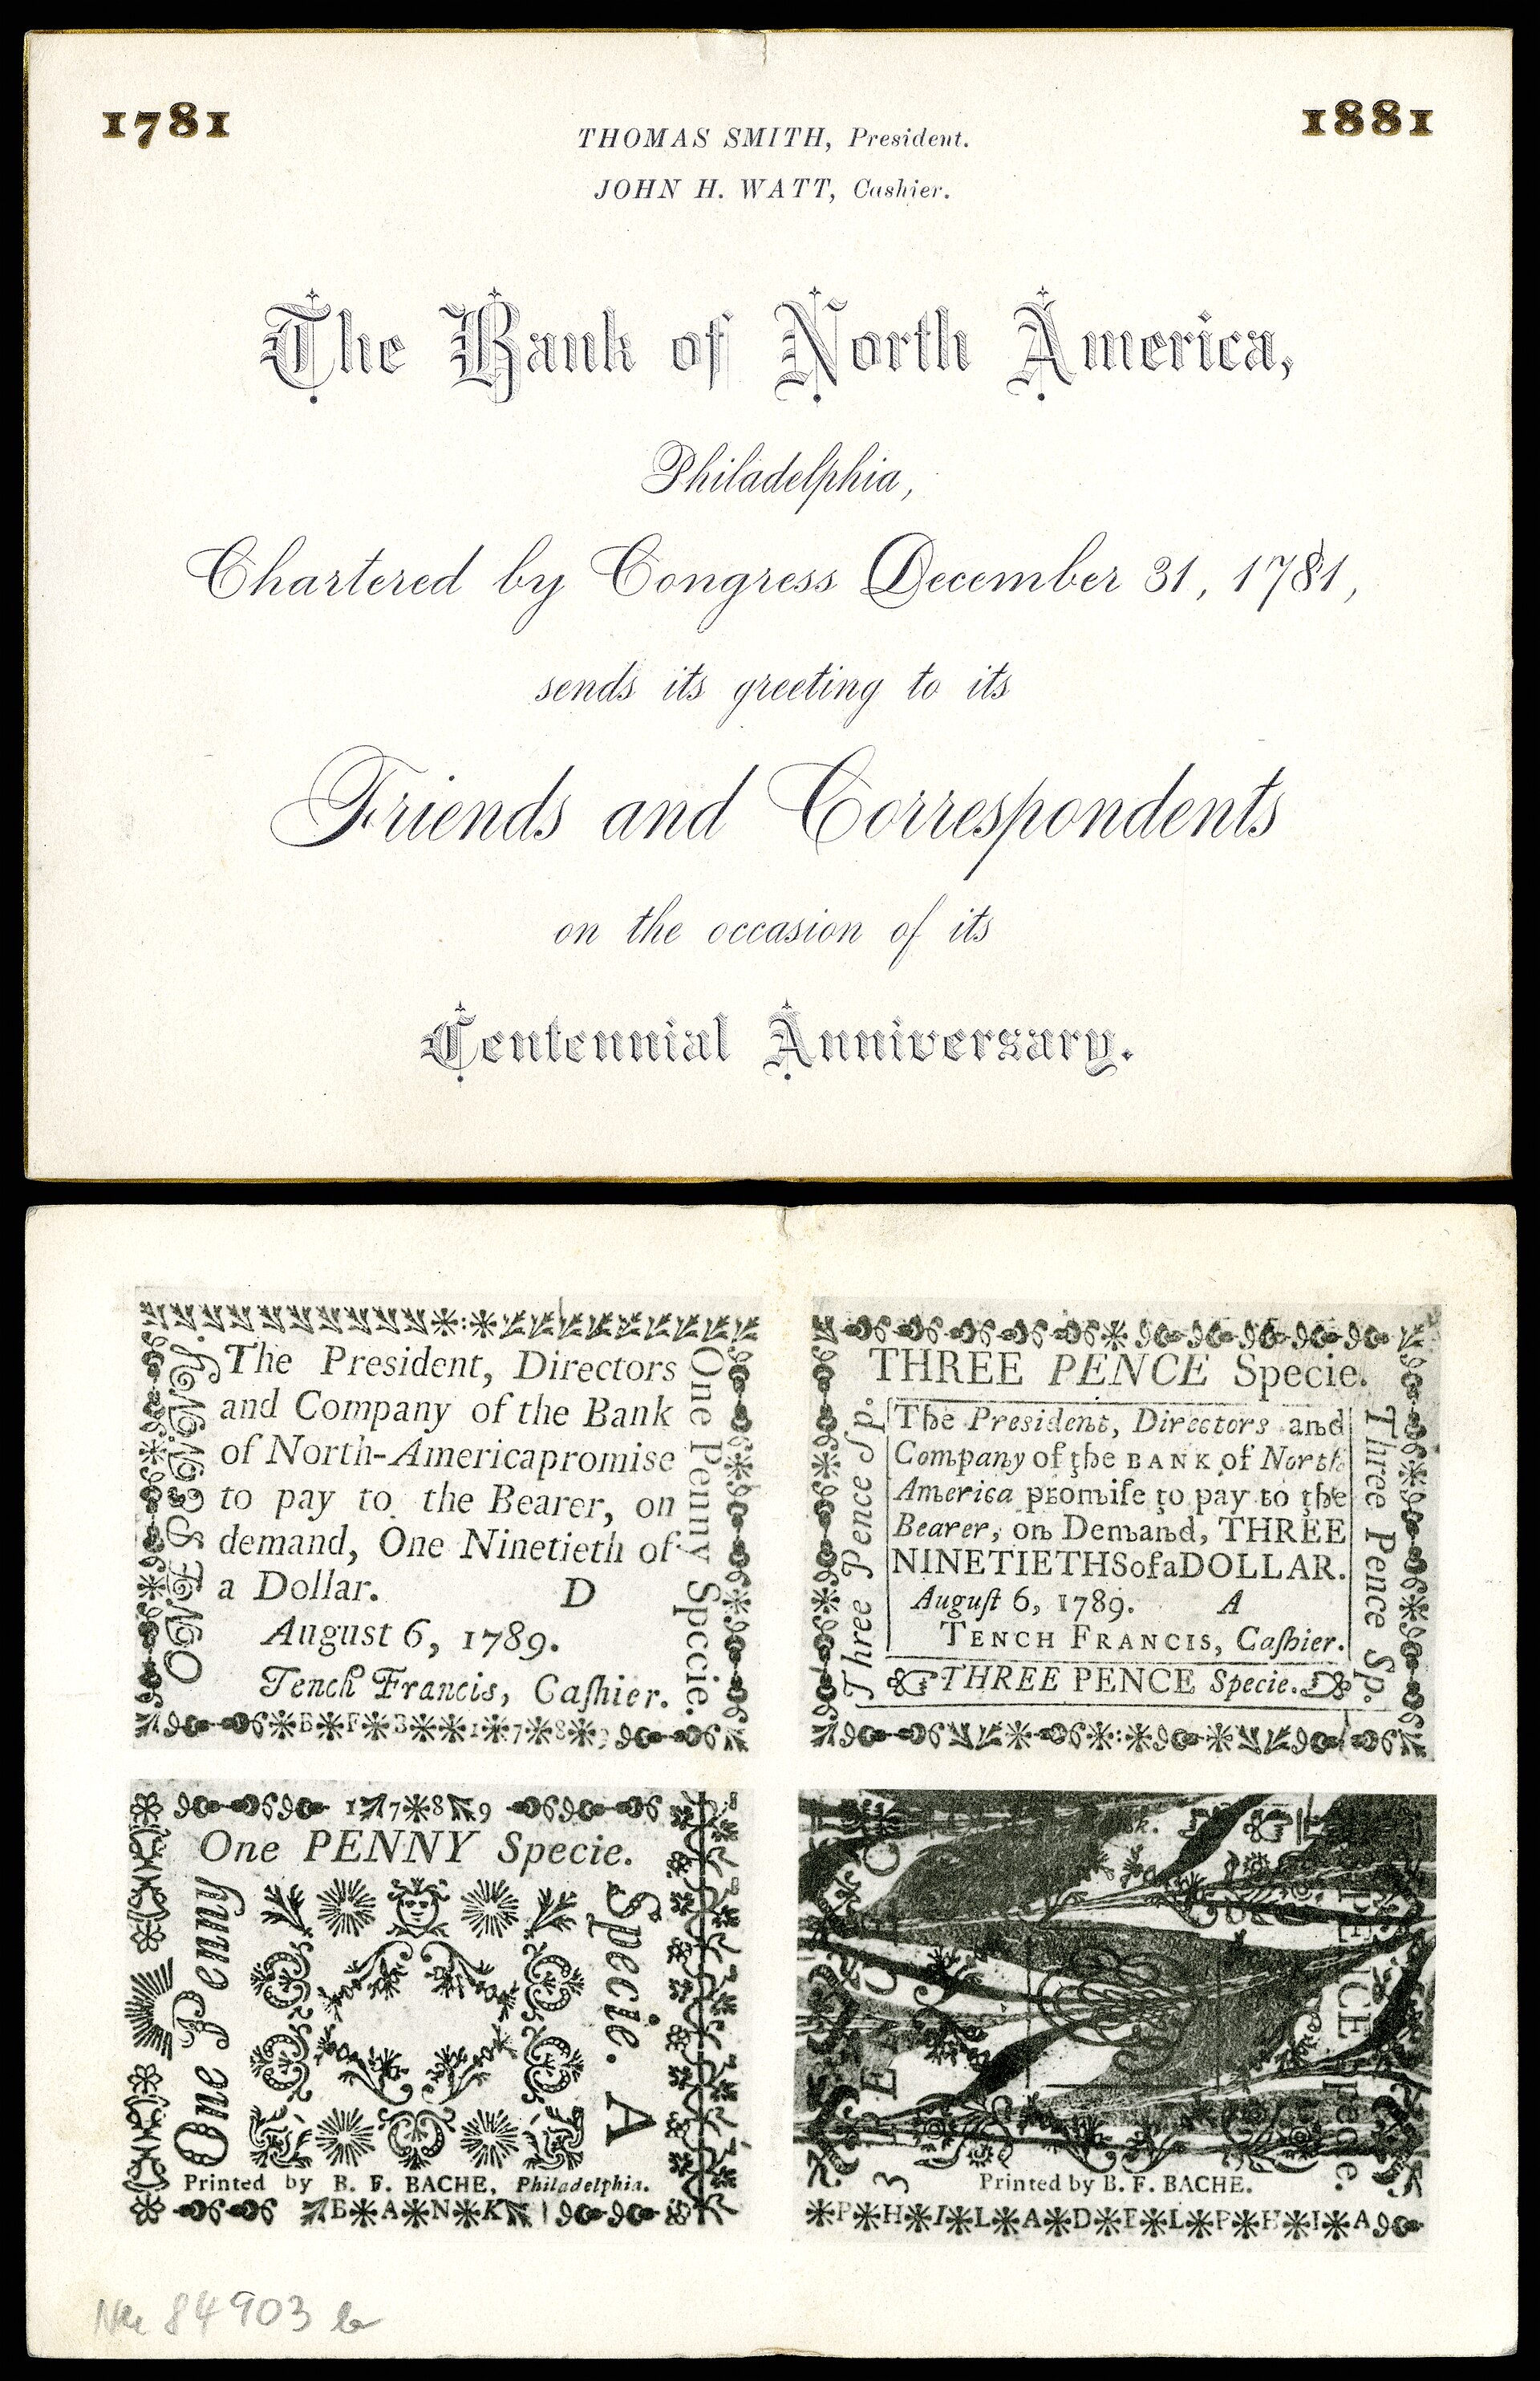 1781
1881
THOMAS SMITH, President.
JOHN H. WATT, Cashier.
The Bank of North America,
Philadelphia,
Chartered by Congress December 31, 1781,
sends its greeting to its
Friends and Correspondents
on the occasion of its
Centennial Anniversary.
ONE PENNY.
The President, Directors
and Company of the Bank
of North-America promise
to pay to the Bearer, on
demand, One Ninetieth of
a Dollar. D
August 6, 1789.
Tench Francis, Caſhier.
One Penny Specie.
B F B 1 7 8 9
THREE PENCE Specie.
Three Pence Sp.
The President, Directors and
Company of the BANK of North
America promiſe to pay to the
Bearer, on Demand, THREE
NINETIETHS of a DOLLAR.
Auguſt 6, 1789. A
TENCH FRANCIS, Caſhier.
THREE PENCE Specie.
Three Pence Sp.
1 7 8 9
One PENNY Specie.
One Penny
Specie. A
Printed by B. F. BACHE, Philadelphia.
B A N K
3
Printed by B. F. BACHE.
P H I L A D E L P H I A
84903 b